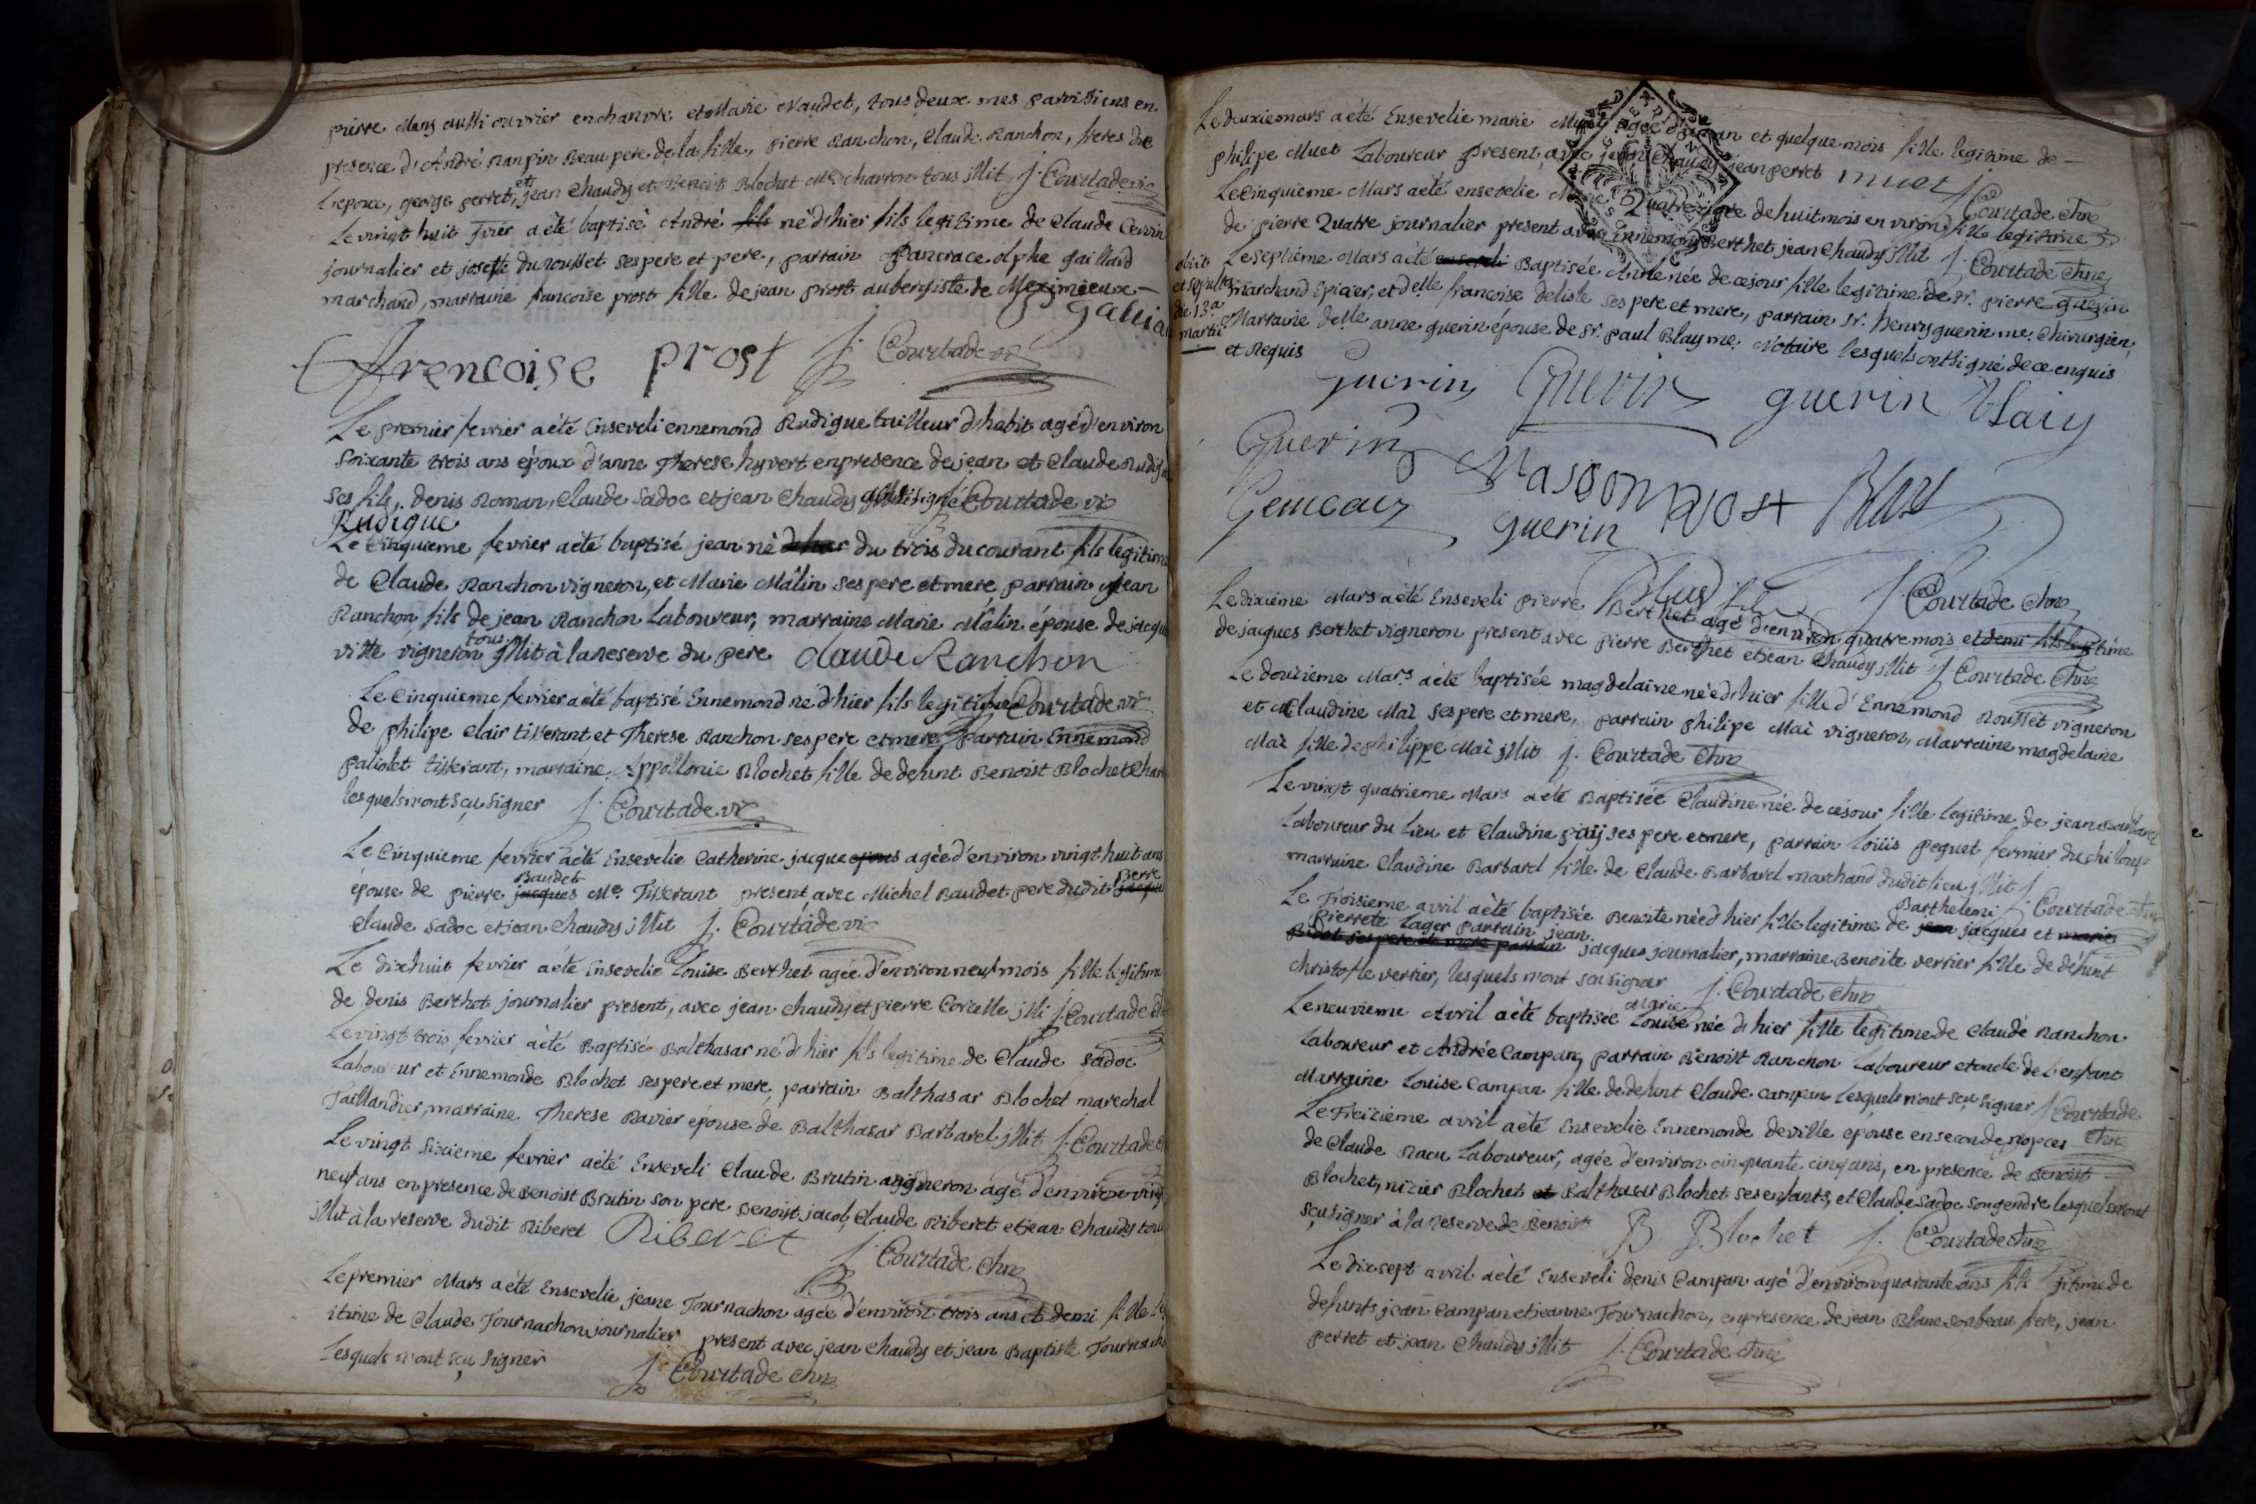 pierre Mens aussi ouvrier en chanvre et Marie Naudet, tous deux mes paroissiens en
presence d'André Ranpin Beau pere de la fille, pierre Ranchon, Claude Ranchon, freres de
l'epoux, george perret, et jean Chaudy et Benoit Blochet Me charron tous illit J. Courtade vic
Le vingt huit Jvier a èté baptisé André fils né d'hier fils legitime de Claude Cervin
journalier et josepte du rousset ses pere et pere, parrain Pancrace olphe gaillard
marchand, marraine francoise prost fille de jean prost aubergiste de Meximieux
galliar
francoise prost J. Courtade vic
Le premier fevrier a èté Enseveli ennemond Rudigue tailleur d'habit agé d'environ
soixante trois ans époux d'anne Therese hyvert en presence de jean et Claude Rudigu
ses fils, denis Roman, Claude Sadoc et jean Chaudy J. Courtade vic
Rudigue
Le Cinquieme fevrier a èté baptisé jean né du trois du courant fils legitime
de Claude Ranchon vigneron, et Marie Mâlin ses pere et mere, parrain jean
Ranchon fils de jean Ranchon Laboureur, marraine Marie Mâlin épouse de jacque
vitte vigneron tous illit à la reserve du pere Claude Ranchon
J. Courtade vic
Le Cinquieme fevrier a èté baptisé Ennemond né d'hier fils legitime
de philipe Clair tisserant et Therese Ranchon ses pere et mere, parrain Ennemond
paliolet tisserant, marraine Appollonie Blochet fille de defunt Benoist Blochet Char
lesquels n'ont sçu signer J. Courtade vic
Le Cinquieme fevrier a èté Ensevelie Catherine jacque epous agée d'environ vingt huit ans
épouse de pierre jacques Baudet Me Tisserant present, avec Michel Baudet pere dudit pierre
Claude Sadoc et jean Chaudy illit J. Courtade vic
Le dixhuit fevrier a èté Ensevelie Louise Berthet agée d'environ neuf mois fille legitime
de denis Berthet journalier present, avec jean Chaudy et pierre Corcelle illi J. Courtade
Le vingt trois fevrier a èté Baptisé Balthasar né d'hier fils legitime de Claude Sadoc
Laboureur et Ennemonde Blochet ses pere et mere, parrain Balthasar Blochet marechal
Taillandier, marraine Therese Ravier épouse de Balthasar Barbarel illit J. Courtade
Le vingt sixieme fevrier a èté Enseveli Claude Brutin vigneron agé d'environ vingt
neuf ans en presence de Benoist Brutin son pere Benoist jacob, Claude Riberet et jean Chaudy tou
illit à la reserve dudit Riberet Riberet J. Courtade Chre
Le premier Mars a èté Ensevelie jeane Tournachon agée d'environ trois ans et demi fille le
itime de Claude Tournachon journalier present avec jean Chaudy et jean Baptiste Tournach
Lesquels n'ont sçu signer J. Courtade Chre
Le deuxie mars a èté Ensevelie marie Muet agée d'un an et quelque mois fille legitime de
philipe Muet Laboureur present, avec jean Chaudy jean perret muet J. Courtade Chre
Le Cinquieme Mars a èté ensevelie Quatre agée de huit mois environ fille legitime
de pierre Quatre journalier present avec Ennemond Berthet jean Chaudy illit J. Courtade Chre
obiit et sepulta die 13a martii
Le septieme Mars a èté enseveli Baptisée Anne née de ce jour fille legitime de Sr. pierre guerin
Marchand Epicier, et delle françoise delisle ses pere et mere, parrain Sr. henry guerin me. Chirurgien,
Marraine delle anne guerin épouse de Sr. paul Blay me. Notaire lesquels ont signé de ce enquis
et Requis
guerin Guerin guerin Blaiy
Guerin Masson prost Blay
Gemeau guerin
J. Courtade Chre
Le dixieme Mars a èté Enseveli pierre Berthet agé d'environ quatre mois et demi fils legitime
de jacques Berthet vigneron present avec pierre Berthet et jean Chaudy illit J. Courtade Chre
Le douzieme Mars a èté baptisée magdelaine née d'hier fille d'Ennemond Rousset vigneron
et Claudine Maì ses pere et mere, parrain philipe Maì vigneron, Marraine magdelaine
Maì fille de philippe Maì illit J. Courtade Chre
Le vingt quatrieme Mars a èté Baptisée Claudine née de ce jour fille legitime de jean Barbarel
Laboureur du lieu et Claudine paij ses pere et mere, parrain Loüis peguet fermier du
marraine Claudine Barbarel fille de Claude Barbarel marchand dudit lieu illit J. Courtade Chre
Le Troisieme avril a èté baptisée Benoite née d'hier fille legitime de jean Barthelemi jacques et marie
Pierrete Lager parrain jean
Bidet ses pere et mere parrain jacques journalier, marraine Benoite verrier fille de défunt
christofle verrier, lesquels n'ont sçu signer J. Courtade Chre
Le neuvieme Avril a èté baptisée Louise Marie née d'hier fille legitime de Claude Ranchon
Laboureur et Andrée Campan, parrain Benoist Ranchon Laboureur et oncle de l'enfant
Marraine Louise Campan fille de defunt Claude Campan lesquels n'ont sçu signer J. Courtade
Chre
Le Treizieme avril a èté Ensevelie Ennemonde deville épouse en seconde nopces
de Claude Racu Laboureur, agée d'environ cinquante cinq ans, en presence de Benoist
Blochet, nizier Blochet et Balthasar Blochet ses enfants, et Claude Sadoc son gendre lesquels n'ont
sçu signer à la reserve de Benoist B Blochet J. Courtade Chre
Le dixsept avril a èté Enseveli denis Campan agé d'environ quarante ans fils legitime de
defunts jean Campan et jeanne Tournachon, en presence de jean Blanc son beau frere, jean
perret et jean Chaudy illit J. Courtade Chre